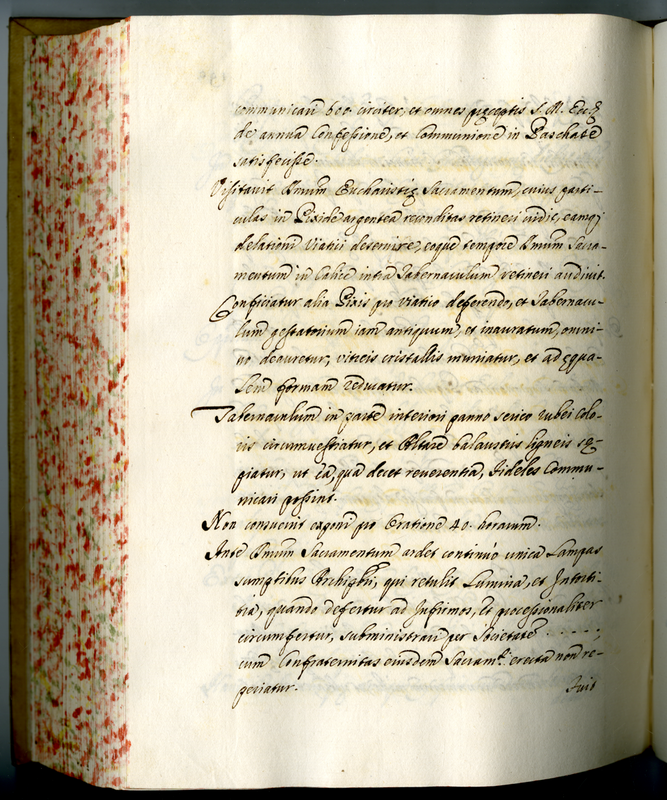 communicari 600. circiter, et omnes pręceptis S. M. Eccę
de annua Confessionē, et Communionē in Paschatē
satisfecisse.
Visitavit Smum Eucharistię Sacramentum, cuius parti-
culas in Pixide argentea reconditas retineri vidit, eamq;
delationi Viatici deservire, eoque tempore Smum Sacra-
mentum in Calice intra Tabernaculum retineri audivit.
Conficiatur alia Pixis pro Viatico deferendo, et Tabernacu-
lum gestatorium iam antiquum, et inauratum, omni-
no deauretur, vitreis cristallis muniatur, et ad ęqua-
lem formam reducatur.
Tabernaculum in parte interiori panno serico rubei colo-
ris circumvestiatur, et Altare balaustris ligneis sę-
piatur, ut ea, qua decet reverentia, Fideles Commu-
nicari possint.
Non consuevit exponi pro Oratione 40. horarum.
Ante Smum Sacramentum ardet continuo unica Lampas
sumptibus Archipbri, qui retulit Lumina, et Intorti-
tia, quando defertur ad Infirmos, et processionaliter
circumfertur, subministrari per Societatē - - - - - ,
cum Confraternitas eiusdem Sacramti. erecta non re-
periatur.
Fuit